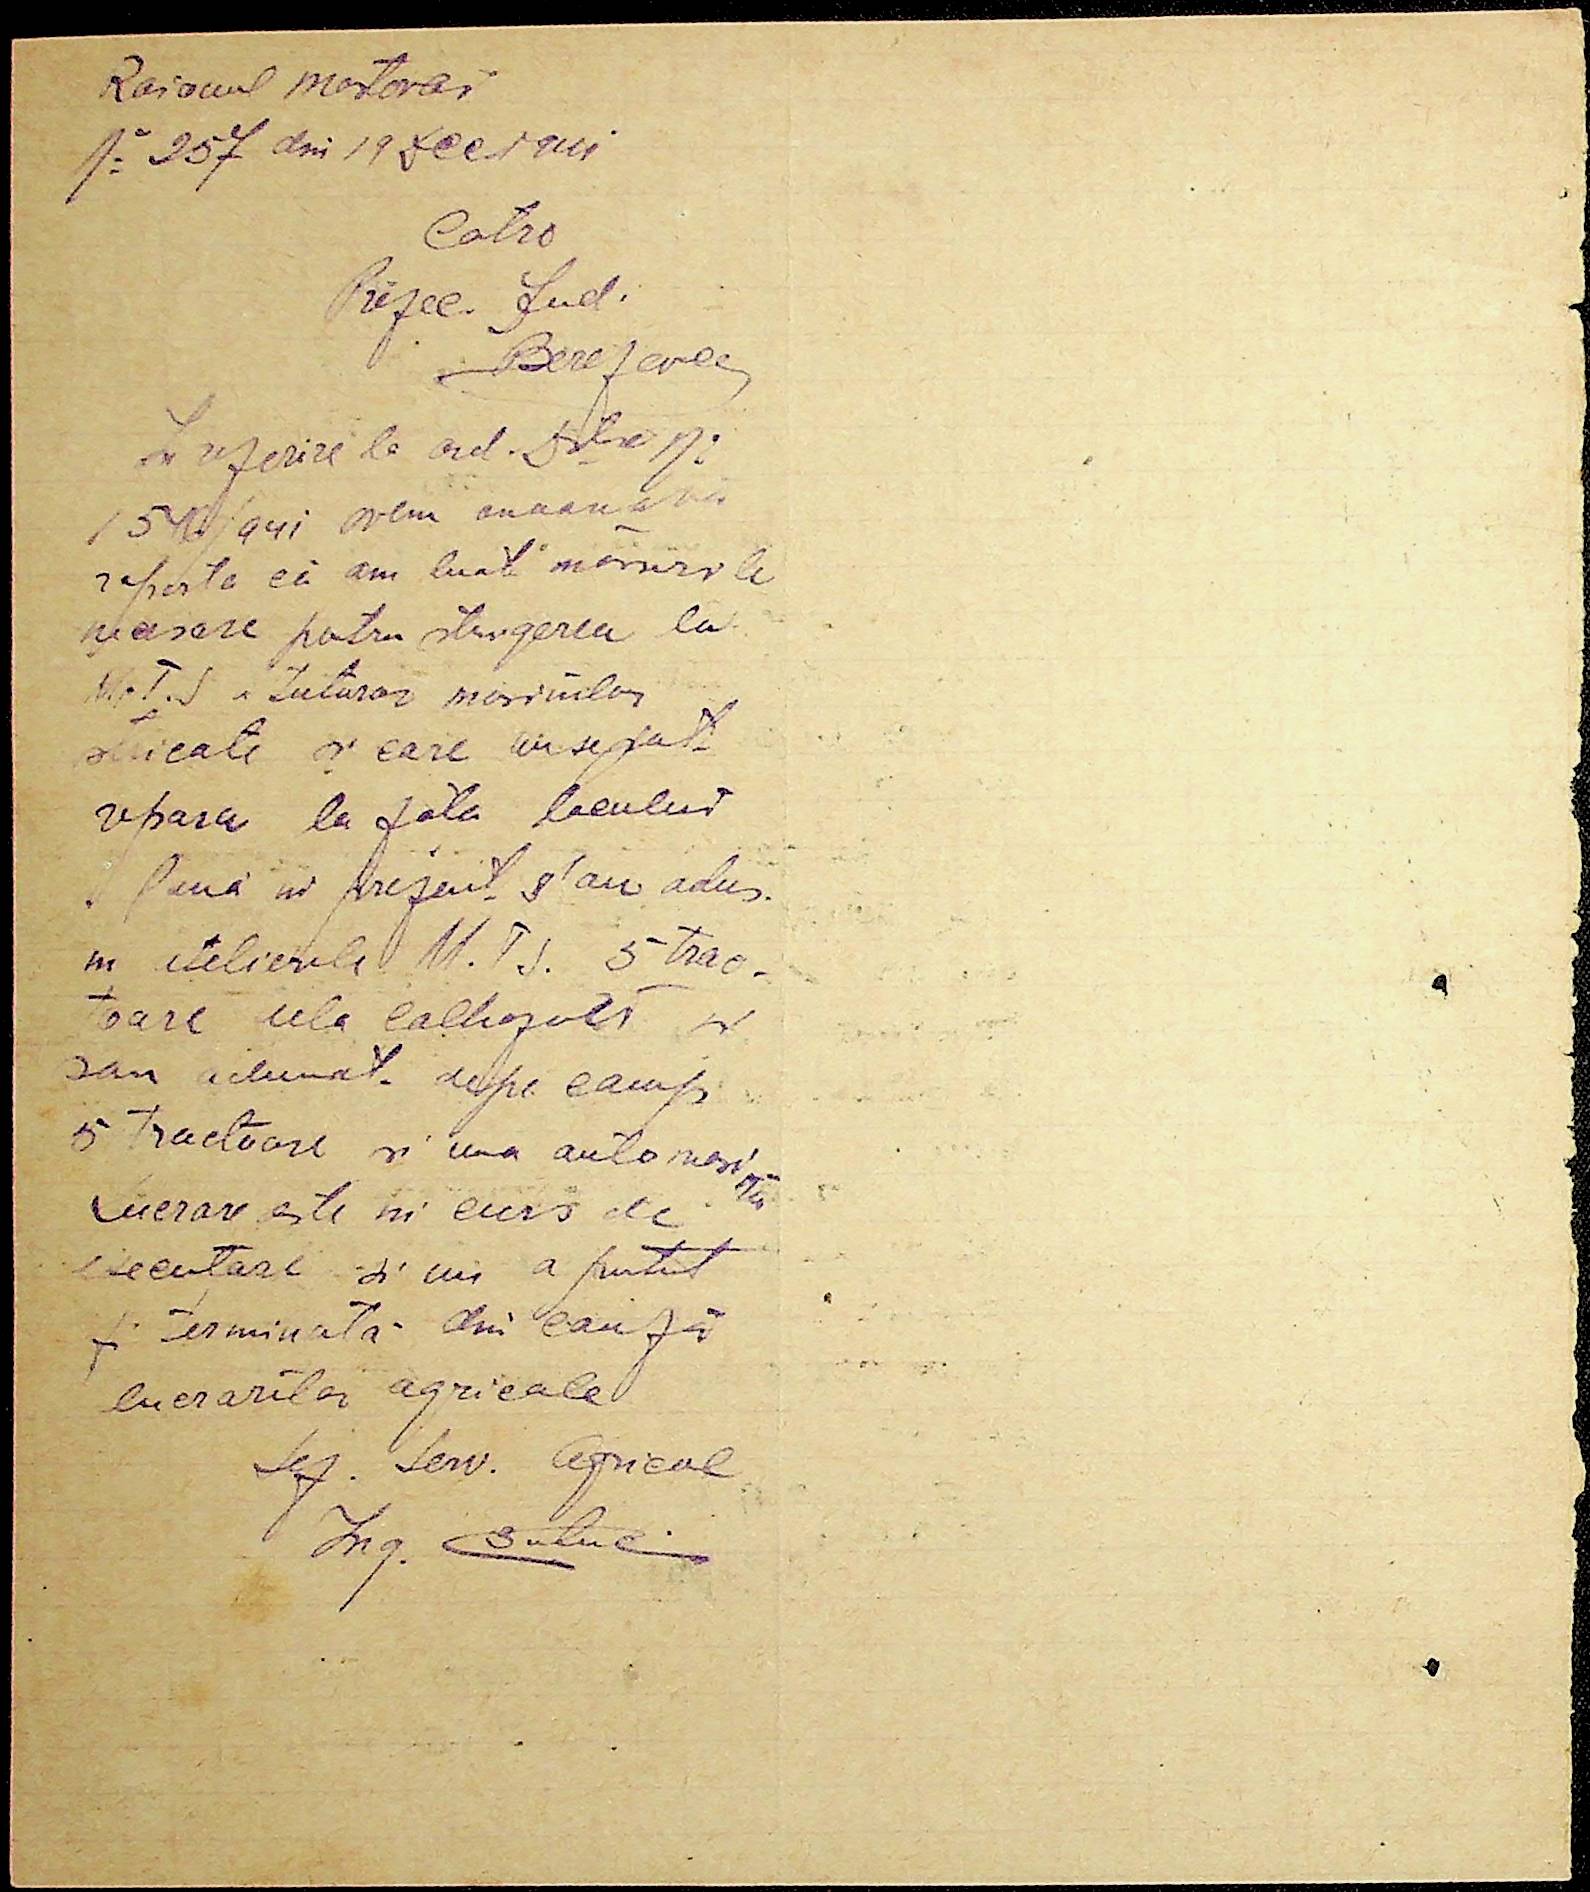 Raionul Mostovoi
No 257 din 19 Dec 941
Catre
Prefec. Jud.
Berezovca
In referire la ord. Dstre No
/941 avem onoarea a vă
raporta că am luat măsurile
necesare pentru strângerea la
M.T.S a tuturor mașinilor
stricate și care nu se pot
repara la fața locului
Până in prezent s'au adus
in atelierele M.T.S. 5 trac-
toare dela colhozuri și
sau adunat depe camp
5 tractoare și una auto mași
nă
Lucrare este in curs de
executare și nu a putut
fi terminată din cauza
lucrarilor agricole
Sef. Serv. Agricol
Ing.